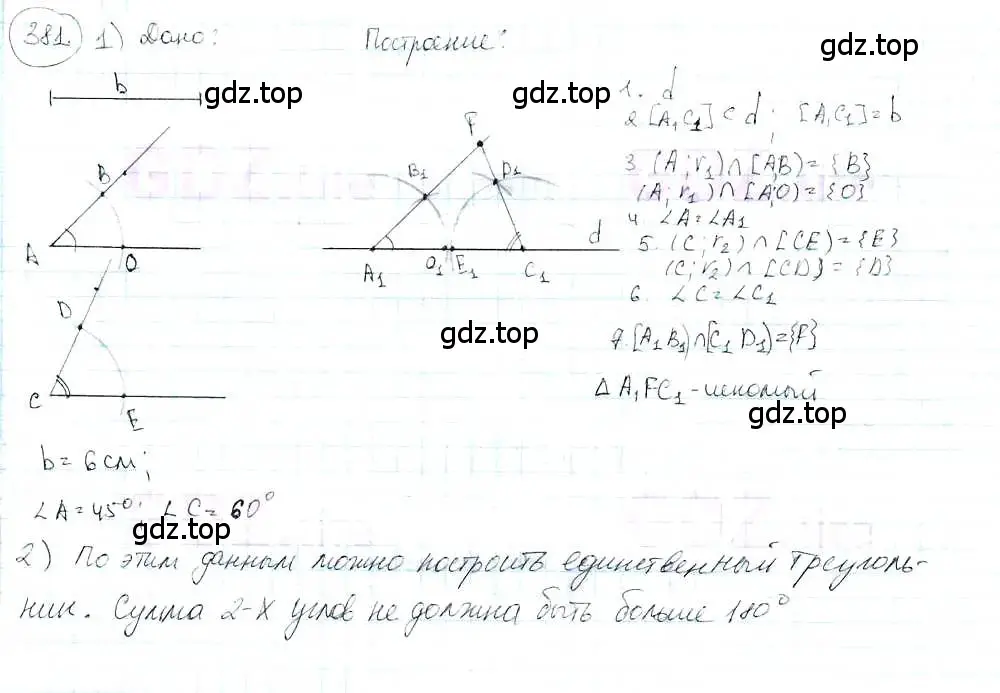 381. 1) Дано: Построение:
b
gdz.top
gdz.top
gdz.top
1. d
2. [A₁C₁] ⊂ d; [A₁C₁] = b
F
B D₁
B₁
3. (A; r₁) ∩ [AB) = {B}
(A; r₁) ∩ [AO) = {O}
4. ∠A = ∠A₁
d
5. (C; r₂) ∩ [CE) = {E}
A O A₁ O₁ E₁ C₁
(C; r₂) ∩ [CD) = {D}
6. ∠C = ∠C₁
D
gdz.top
7. [A₁B₁) ∩ [C₁D₁) = {F}
C E
Δ A₁FC₁ - искомый
gdz.top
b = 6 см;
∠A = 45°; ∠C = 60°
gdz.top
2) По этим данным можно построить единственный треуголь-
ник. Сумма 2-х углов не должна быть больше 180°